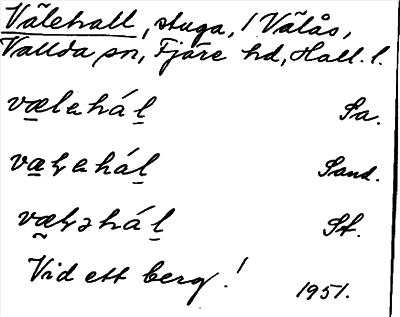 Välehall, stuga, i Välås,
Vallda sn, Fjäre hd, Hall. l.
væ̲lahál̲ Sa.
væ̲ɫahál̲ Sand.
væ̰ɫəhál̲ St.
Vid ett berg!
1951.